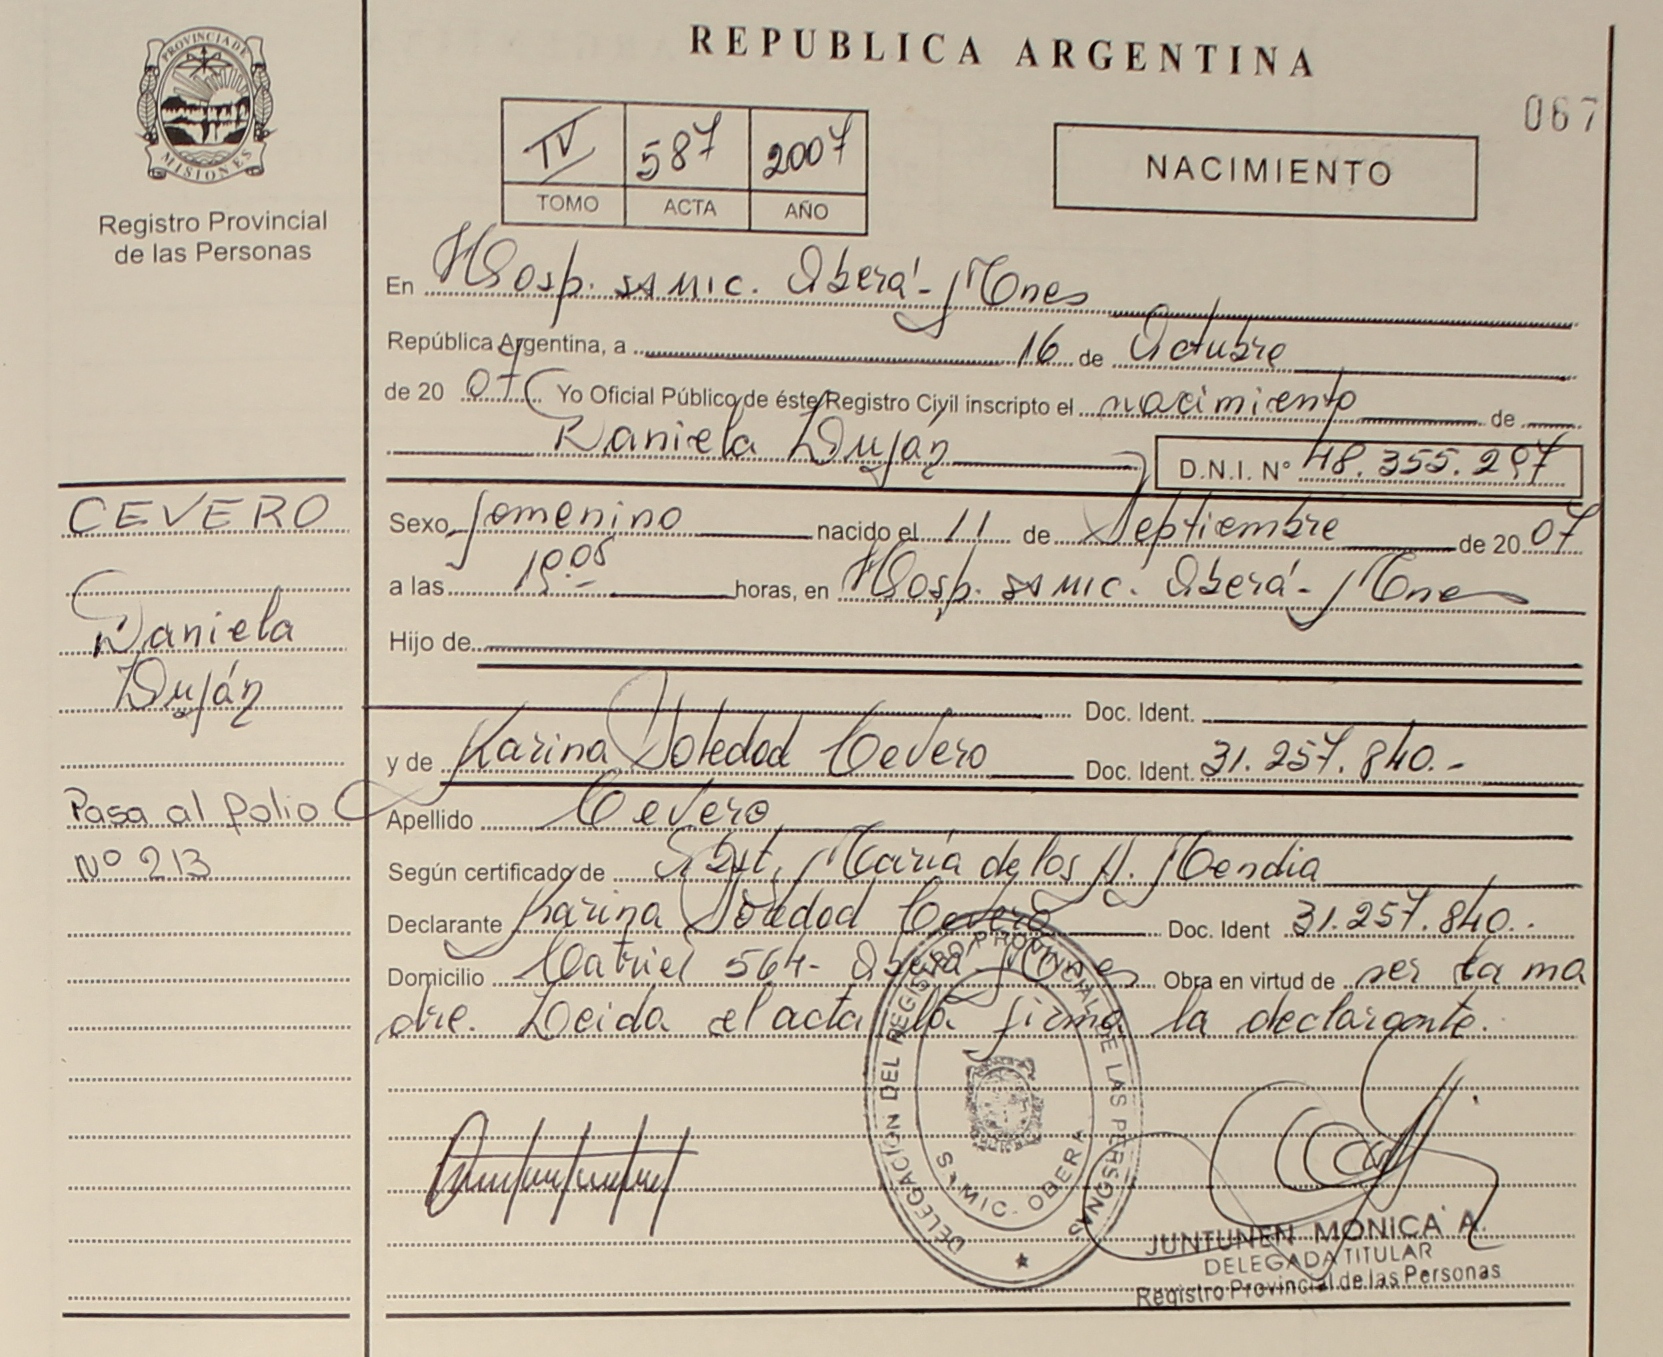 REPUBLICA ARGENTINA
067
PROVINCIA DE
MISIONES
Registro Provincial
de las Personas
IV 587 2007
TOMO ACTA AÑO
NACIMIENTO
En Hosp. SAMIC. Oberá - Mnes
República Argentina, a 16 de Octubre
de 20 07 Yo Oficial Público de éste Registro Civil inscripto el nacimiento de
Daniela Luján D.N.I. Nº 48.355.297
Sexo femenino nacido el 11 de Septiembre de 20 07
a las horas, en Hosp. SAMIC. Oberá - Mnes
Hijo de
Doc. Ident.
y de Karina Soledad Cevero Doc. Ident. 31.257.840.-
Apellido Cevero
Según certificado de Obst. María de los A. Mendia
Declarante Karina Soledad Cevero Doc. Ident 31.257.840.-
Domicilio Catriel 564- Oberá. Mnes Obra en virtud de ser la ma
dre. Leida el acta la firma la declarante.
CEVERO
Daniela
Luján
Pasa al folio
Nº 213
DELEGACIÓN DEL REGISTRO PROVINCIAL DE LAS PERSONAS
SAMIC. OBERA
JUNTUNEN MONICA A.
DELEGADA TITULAR
Registro Provincial de las Personas